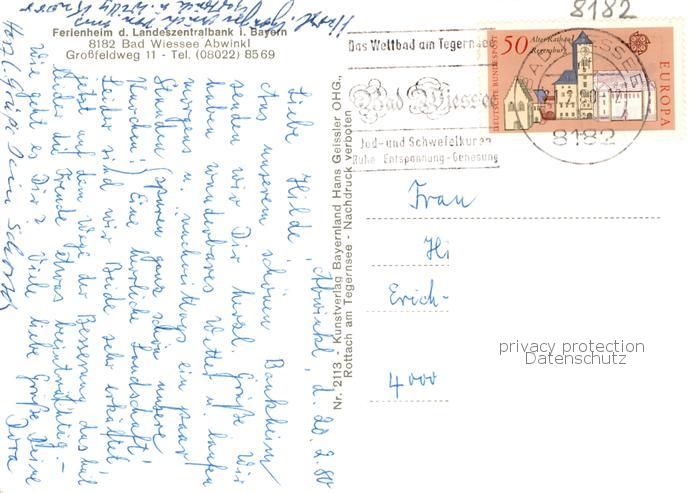 Ferienheim d. Landeszentralbank i. Bayern
8182 Bad Wiessee Abwinkl
Großfeldweg 11 - Tel. (08022) 8569
Abwinkl, d. 20.2.80
Liebe Hilde,
Aus unserem schönen Bankheim
senden wir Dir herzl. Grüße. Wir
haben wunderbares Wetter u. laufen
morgens u. nachmittags ein paar
Stunden (spüren ganz schön unsere
Knochen) Eine herrliche Landschaft!
Leider sind wir Beide sehr erkältet
jetzt auf dem Wege der Besserung das hat
leider die Freude etwas beeinträchtigt. -
Wie geht es Dir? Viele liebe Grüße Deine
Dora
Herzl. Grüße Dein Schorsch
Nr. 2113 - Kunstverlag Bayernland Hans Geissler OHG.,
Rottach am Tegernsee - Nachdruck verboten
8182
Das Weltbad am Tegernsee
Bad Wiessee
Jod- und Schwefelkuren
Ruhe Entspannung - Genesung
50
Altes Rathaus
Regensburg
DEUTSCHE BUNDESPOST
EUROPA
8182
Frau
Hi
Erich-
4000
privacy protection
Datenschutz